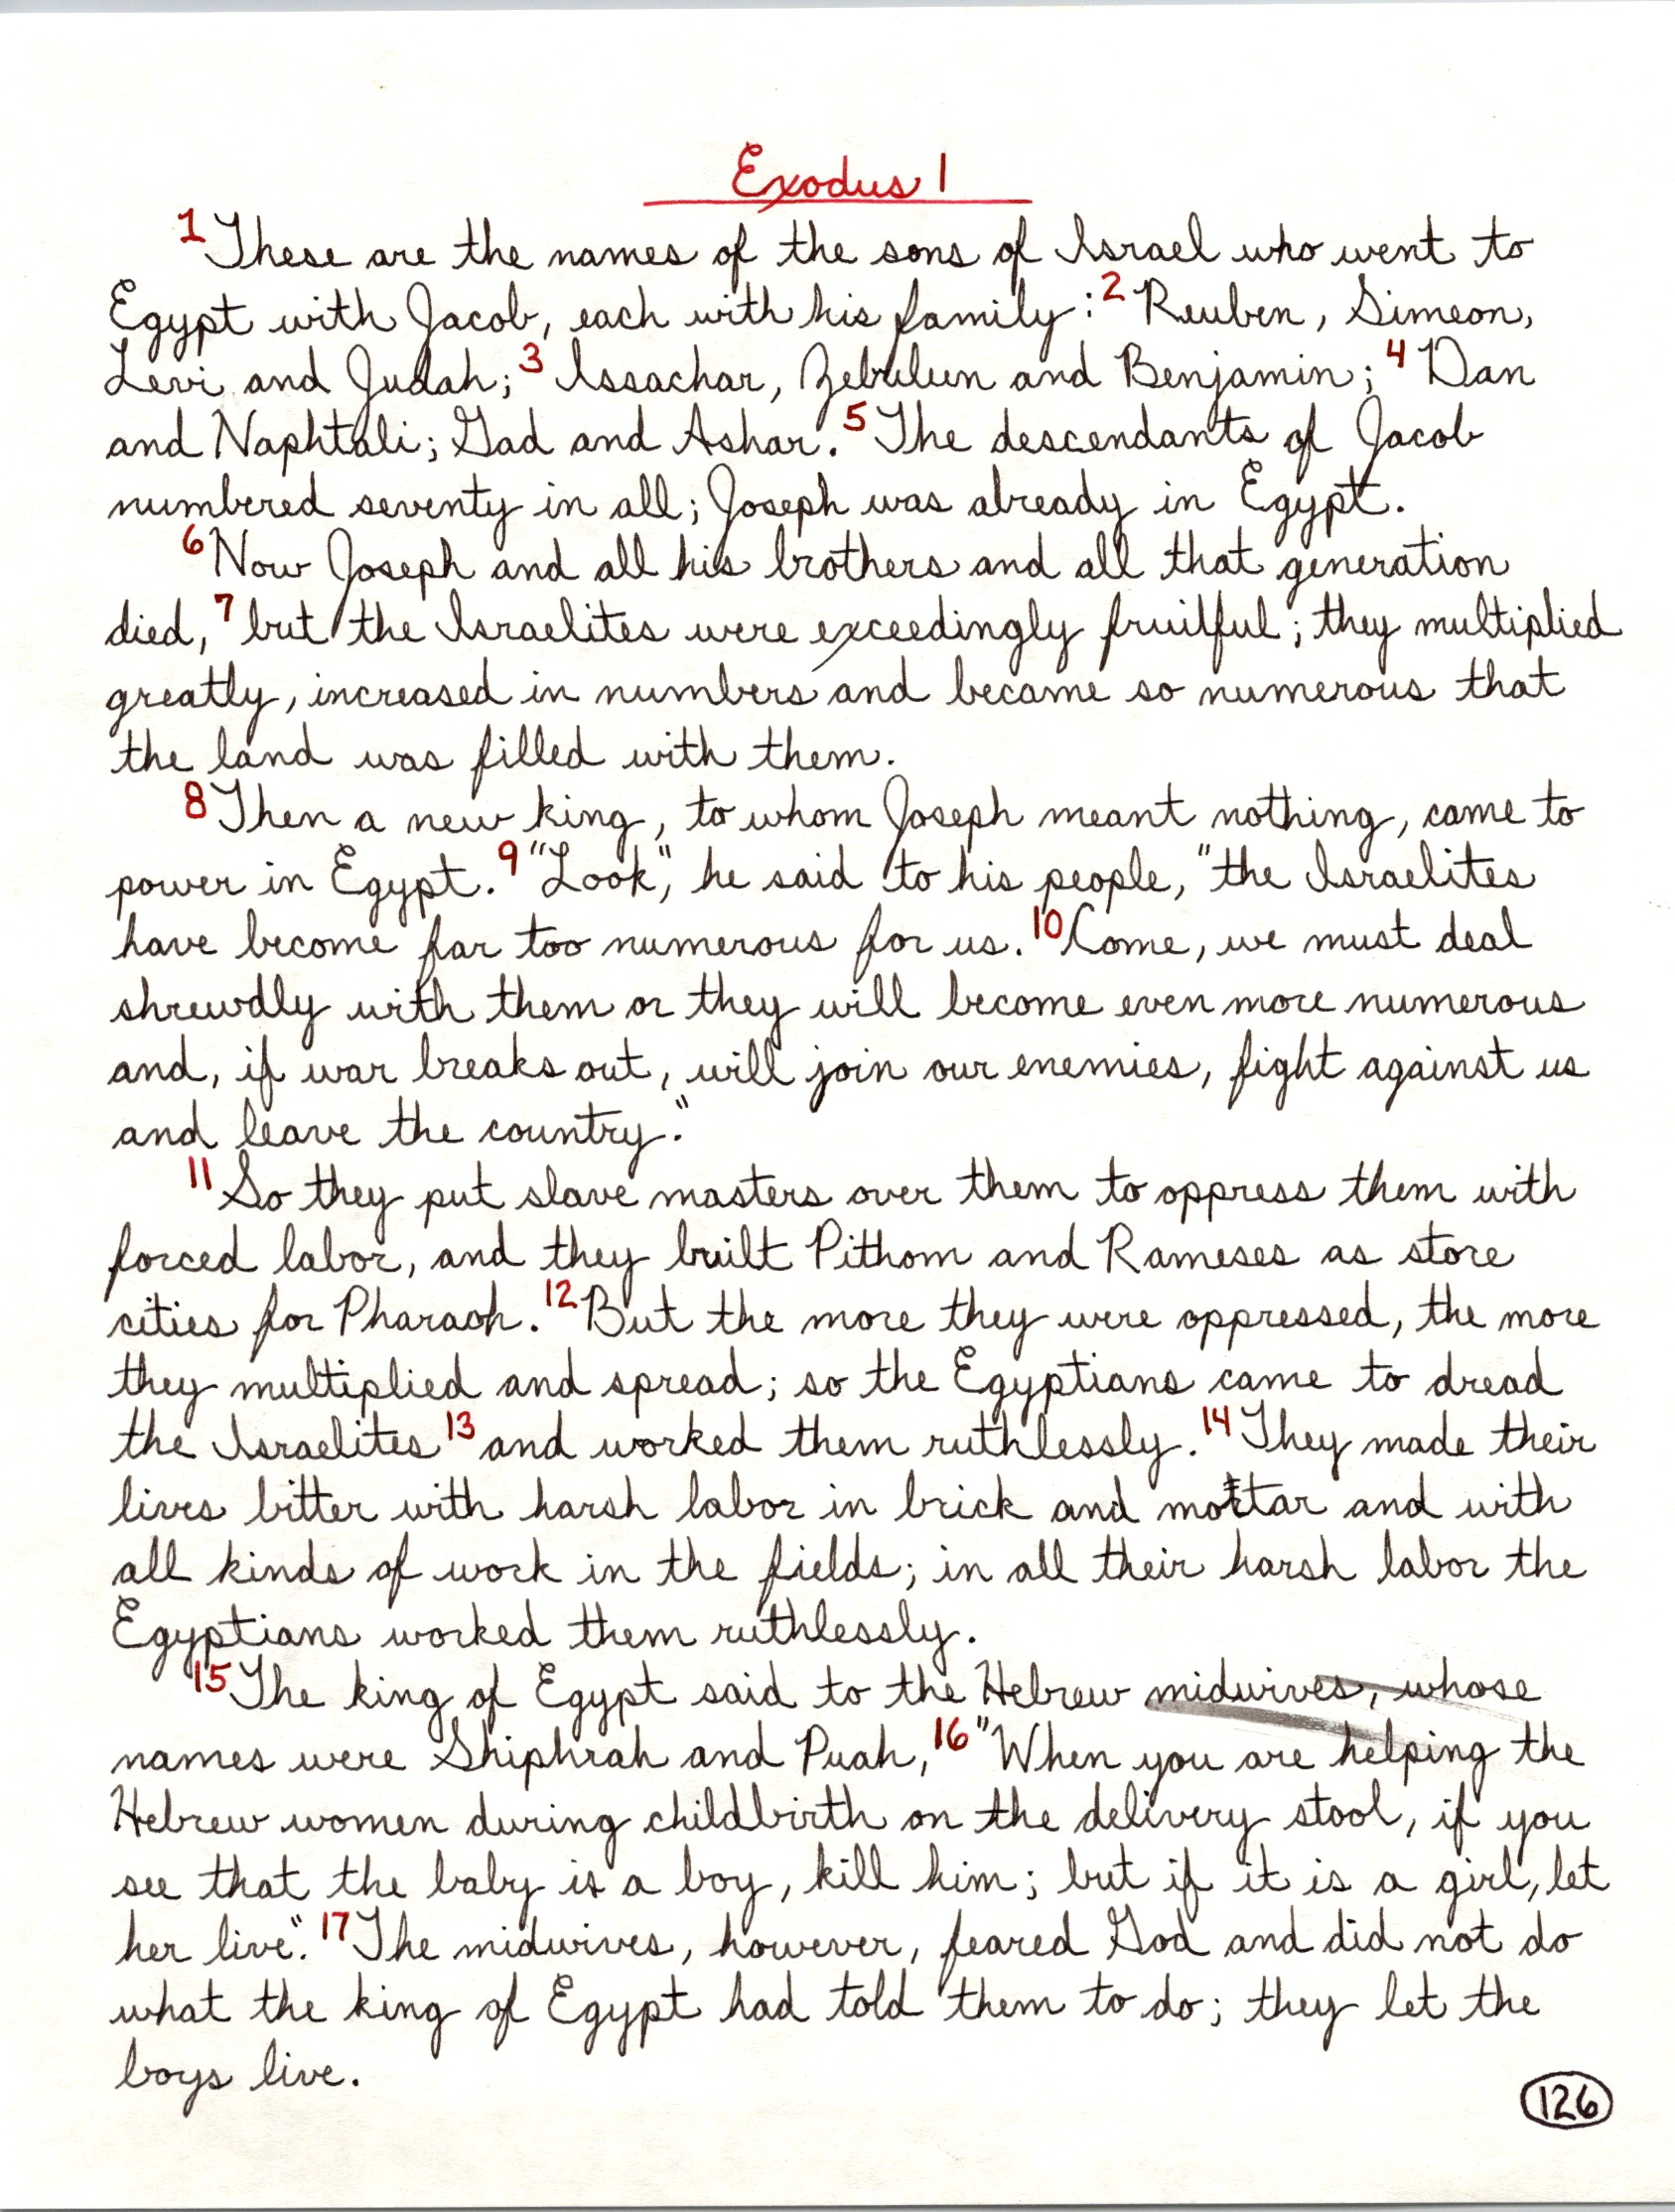 Exodus 1
1 These are the names of the sons of Israel who went to
Egypt with Jacob, each with his family: 2 Reuben, Simeon,
Levi and Judah; 3 Issachar, Zebulun and Benjamin; 4 Dan
and Naphtali; Gad and Ashar. 5 The descendants of Jacob
numbered seventy in all; Joseph was already in Egypt.
6 Now Joseph and all his brothers and all that generation
died, 7 but the Israelites were exceedingly fruitful; they multiplied
greatly, increased in numbers and became so numerous that
the land was filled with them.
8 Then a new king, to whom Joseph meant nothing, came to
power in Egypt. 9 "Look," he said to his people, "the Israelites
have become far too numerous for us. 10 Come, we must deal
shrewdly with them or they will become even more numerous
and, if war breaks out, will join our enemies, fight against us
and leave the country."
11 So they put slave masters over them to oppress them with
forced labor, and they built Pithom and Rameses as store
cities for Pharaoh. 12 But the more they were oppressed, the more
they multiplied and spread; so the Egyptians came to dread
the Israelites 13 and worked them ruthlessly. 14 They made their
lives bitter with harsh labor in brick and mortar and with
all kinds of work in the fields; in all their harsh labor the
Egyptians worked them ruthlessly.
15 The king of Egypt said to the Hebrew midwives, whose
names were Shiphrah and Puah, 16 "When you are helping the
Hebrew women during childbirth on the delivery stool, if you
see that the baby is a boy, kill him; but if it is a girl, let
her live." 17 The midwives, however, feared God and did not do
what the king of Egypt had told them to do; they let the
boys live.
126